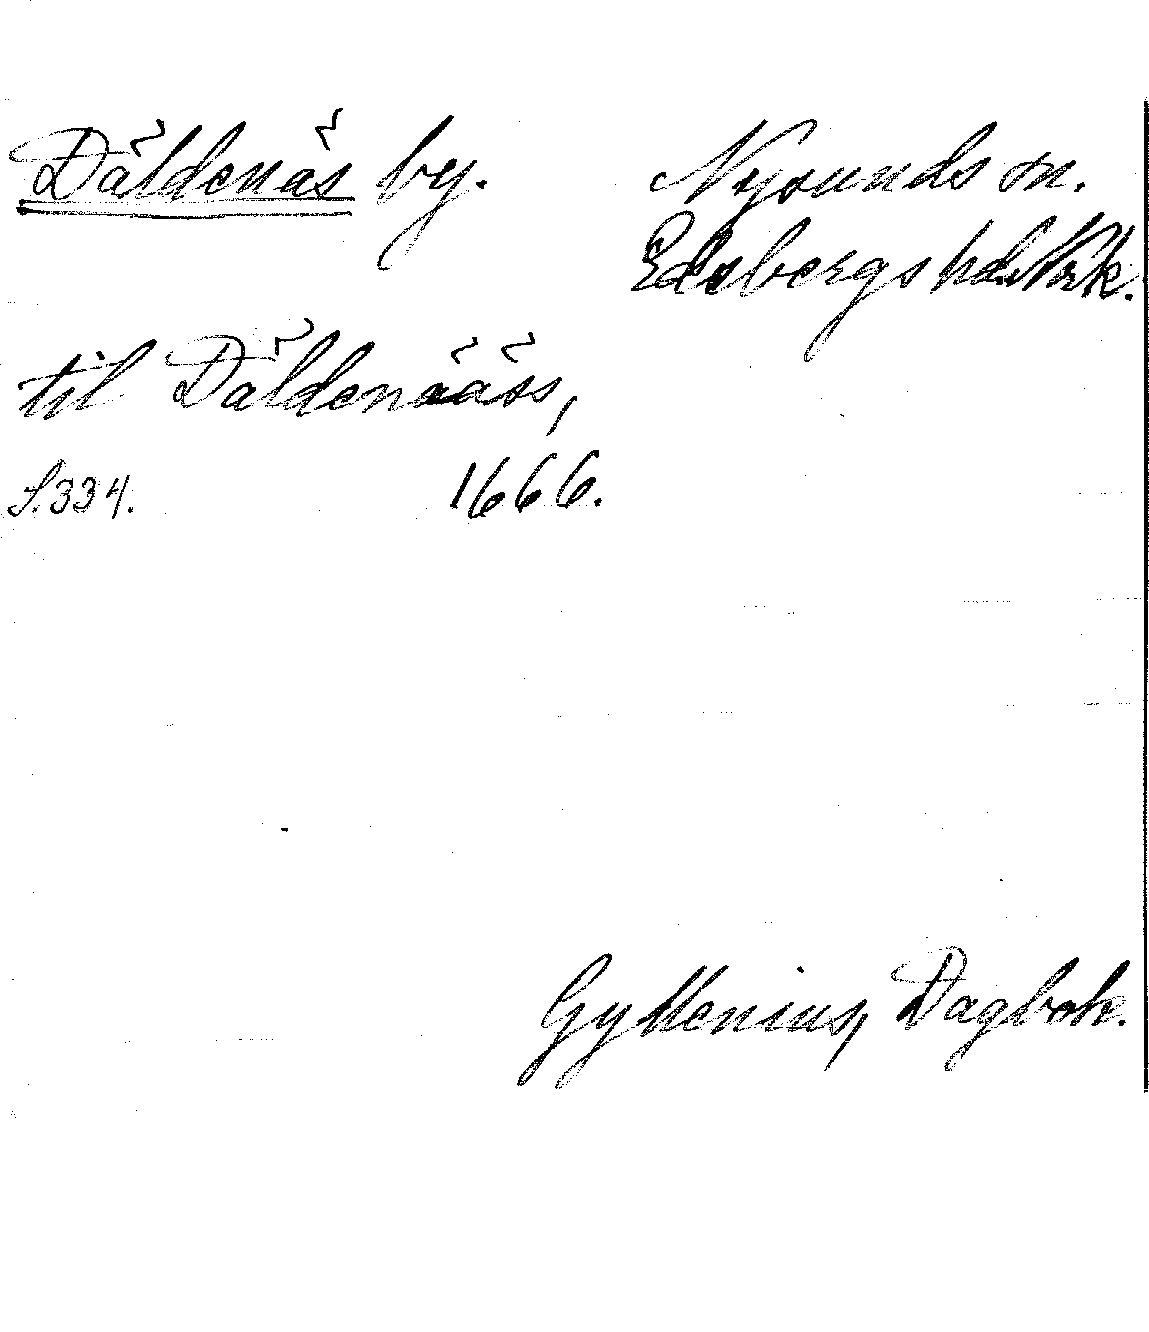 Däldenäs by.
Nysunds sn.
Edsbergs hd. Nrk.
til Däldenääss,
S. 334. 1666.
Gyllenius, Dagbok.